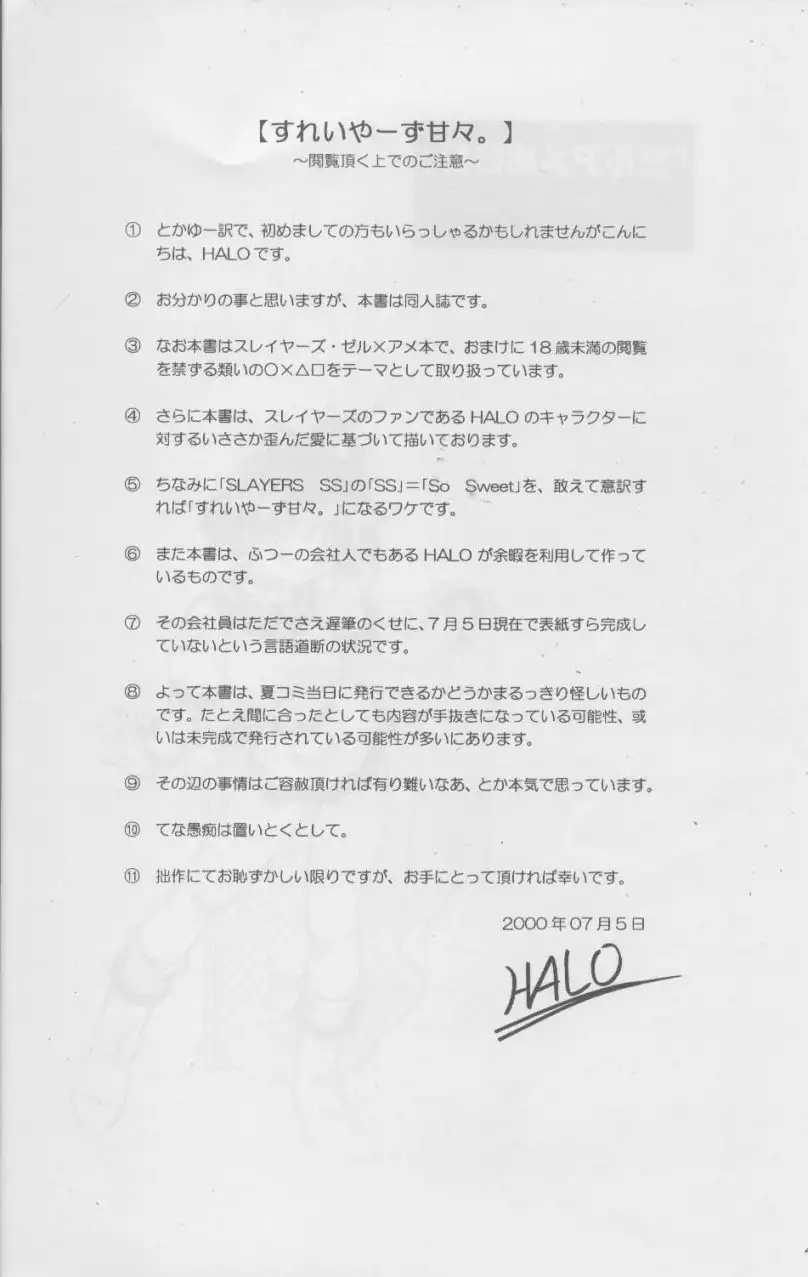 【すれいやーず甘々。】
～閲覧頂く上でのご注意～
① とかゆー訳で、初めましての方もいらっしゃるかもしれませんがこんに
ちは、HALOです。
② お分かりの事と思いますが、本書は同人誌です。
③ なお本書はスレイヤーズ・ゼル×アメ本で、おまけに18歳未満の閲覧
を禁ずる類いの○×△□をテーマとして取り扱っています。
④ さらに本書は、スレイヤーズのファンであるHALOのキャラクターに
対するいささか歪んだ愛に基づいて描いております。
⑤ ちなみに「SLAYERS SS」の「SS」＝「So Sweet」を、敢えて意訳す
れば「すれいやーず甘々。」になるワケです。
⑥ また本書は、ふつーの会社人でもあるHALOが余暇を利用して作って
いるものです。
⑦ その会社員はただでさえ遅筆のくせに、7月5日現在で表紙すら完成し
ていないという言語道断の状況です。
⑧ よって本書は、夏コミ当日に発行できるかどうかまるっきり怪しいもの
です。たとえ間に合ったとしても内容が手抜きになっている可能性、或
いは未完成で発行されている可能性が多いにあります。
⑨ その辺の事情はご容赦頂ければ有り難いなあ、とか本気で思っています。
⑩ てな愚痴は置いとくとして。
⑪ 拙作にてお恥ずかしい限りですが、お手にとって頂ければ幸いです。
2000年07月5日
HALO